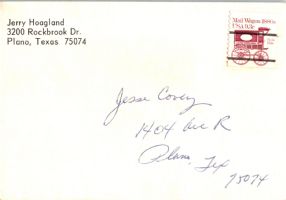 Jerry Hoagland
3200 Rockbrook Dr.
Plano, Texas 75074
Mail Wagon 1880s
USA 9.3c
Jesse Covey
1404 Ave R
Plano, Tex
75074